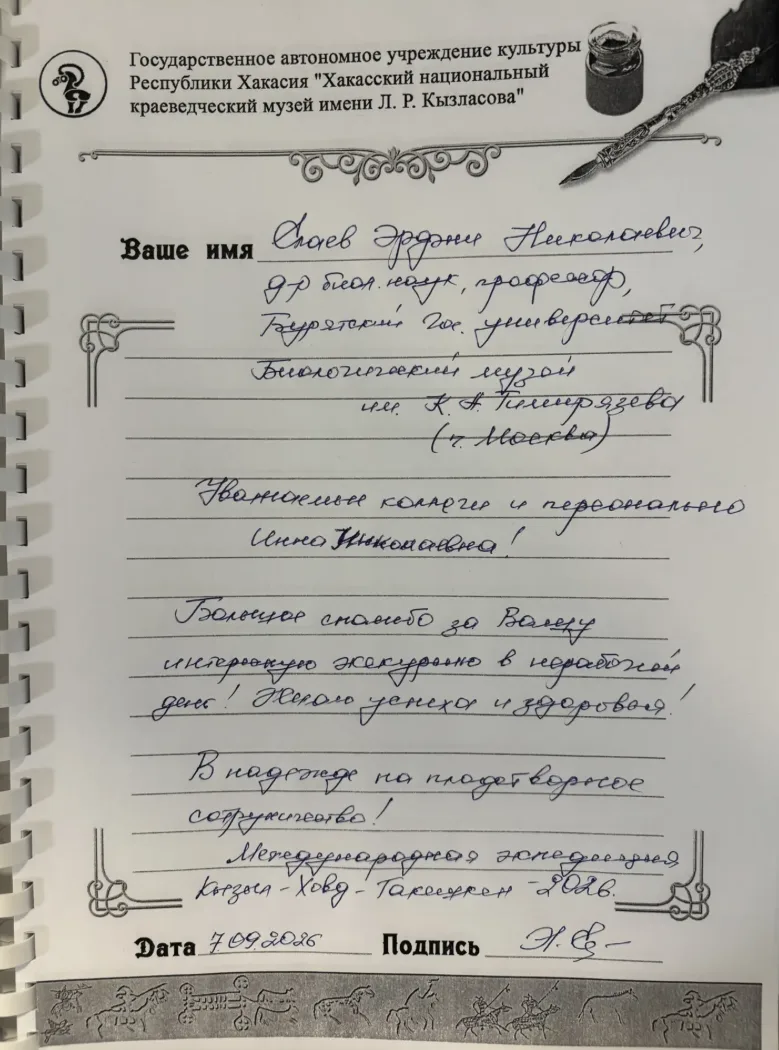 Государственное автономное учреждение культуры
Республики Хакасия "Хакасский национальный
краеведческий музей имени Л. Р. Кызласова"
Ваше имя Елаев Эрдэни Николаевич,
д-р биол. наук, профессор,
Бурятский Гос. университет
Биологический музей
им. К.А. Тимирязева
(г. Москва)
Уважаемые коллеги и персонально
Инна Николаевна!
Большое спасибо за Вашу
интересную экскурсию в нерабочий
день! Желаю успеха и здоровья!
В надежде на плодотворное
сотрудничество!
Международная экспедиция
Кызыл-Ховд- -2026.
Дата 7.09.2026 Подпись